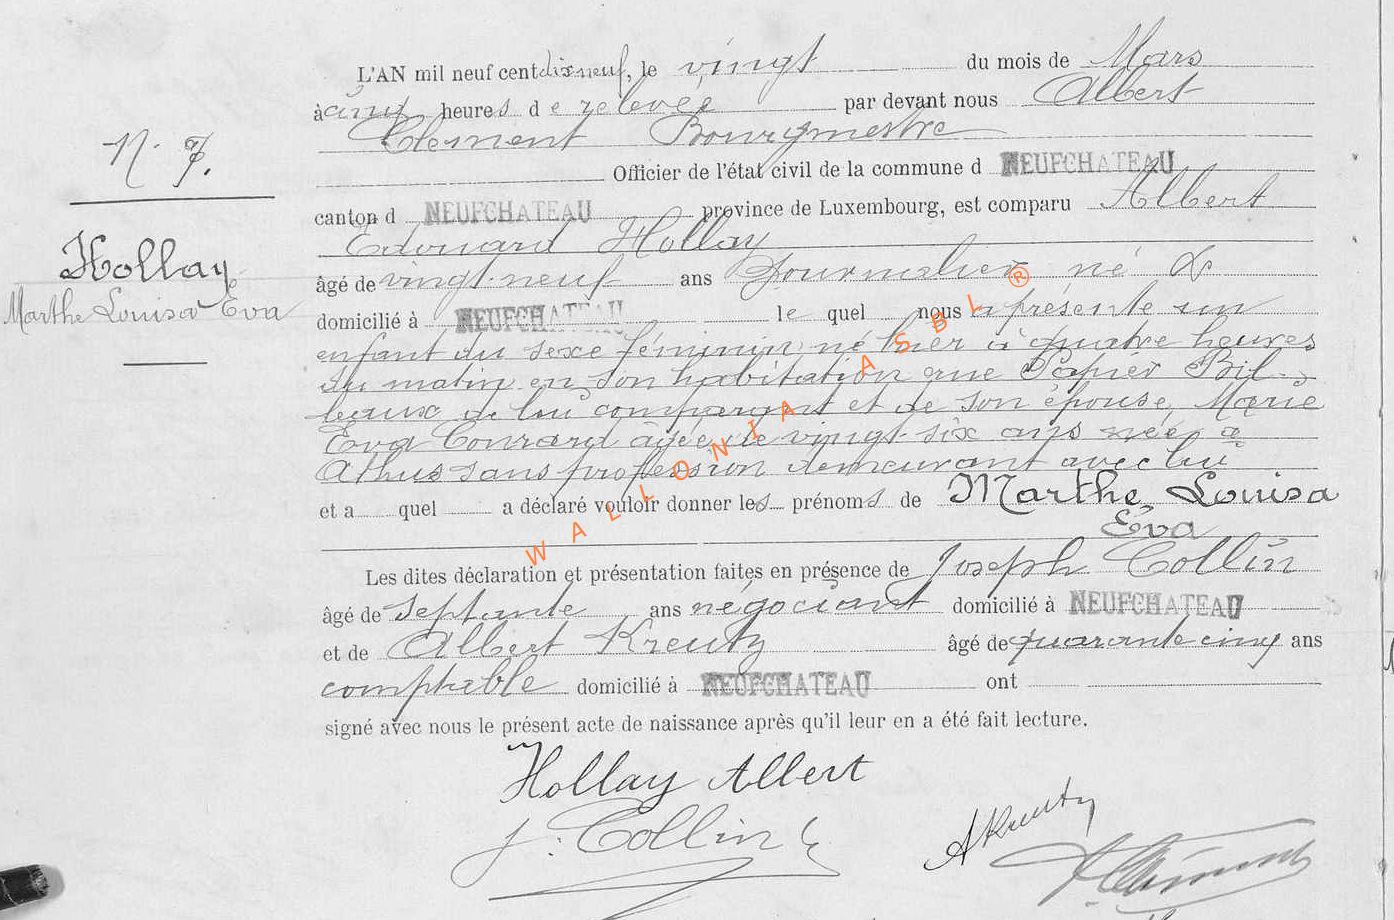 L'AN mil neuf cent dixneuf, le vingt du mois de Mars
à cinq heures de relevée par devant nous Albert
Clement Bourgmestre
Officier de l'état civil de la commune d NEUFCHATEAU
canton d NEUFCHATEAU province de Luxembourg, est comparu Albert
N. 7.
Edouard Hollay
âgé de vingt-neuf ans Journalier né à
domicilié à NEUFCHATEAU le quel nous a présenté un
Hollay
Marthe Louisa Eva
enfant du sexe féminin né hier à quatre heures
du matin en son habitation rue
de lui comparant et de son épouse, Marie
Eva Conrard âgée de vingt-six ans née à
Athus sans profession demeurant avec lui
et a quel a déclaré vouloir donner les prénoms de Marthe Louisa
Eva
Les dites déclaration et présentation faites en présence de Joseph Collin
âgé de septante ans négociant domicilié à NEUFCHATEAU
et de Albert Kreutz âgé de quarante cinq ans
comptable domicilié à NEUFCHATEAU ont
signé avec nous le présent acte de naissance après qu'il leur en a été fait lecture.
Hollay Albert
J. Collin
AKreutz
A. Clément
WALLONIA ASBL ®